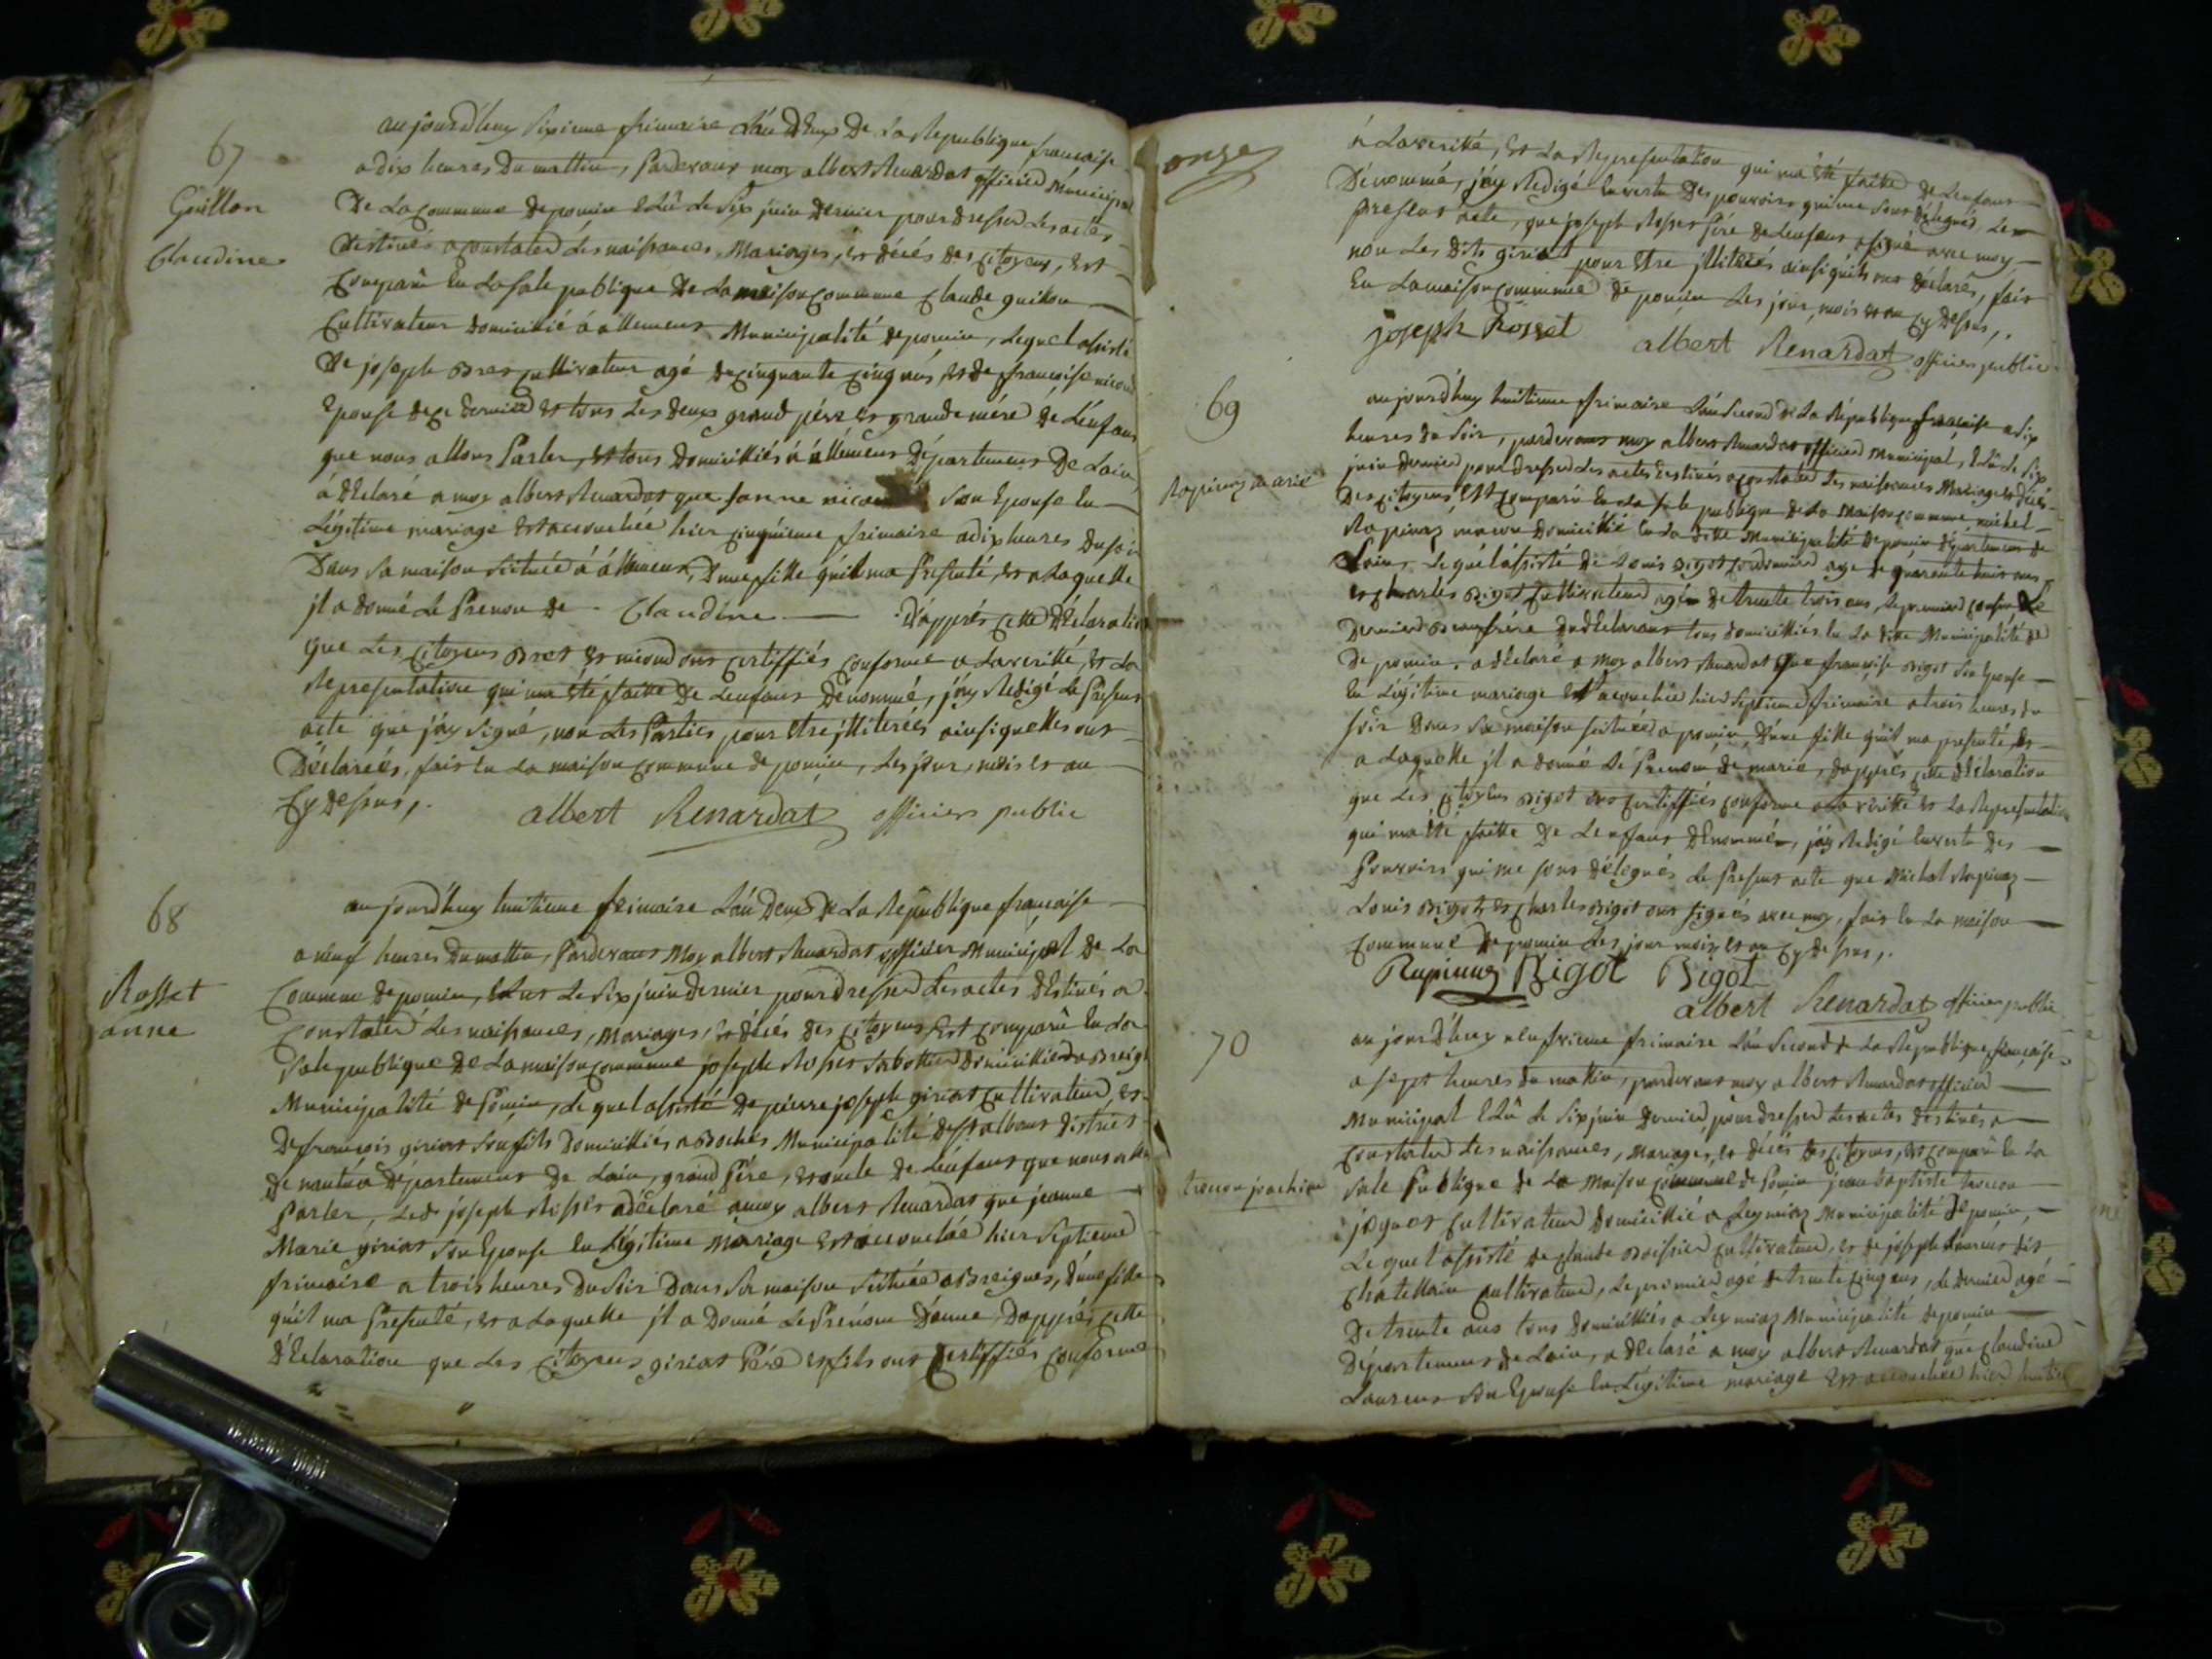 67
Guillon
Claudine
aujourd'huy sixieme frimaire L'án deux De La Republique française
a dix heures Du mattin, Pardevant moy albert Renardat officier Municipal
De La Commune de poncin Elû Le Six juin dernier pour dresser Les actes
Destinés a Constater Les naissances, Mariages, et décés des Citoyens, Est
Comparû En La Sale publique De La maison Commune Claude guillon
Cultivateur Domicilié á allement Municipalité de poncin, Lequel assisté
De joseph Bret Cultivateur agé de Cinquante Cinq ans, et de françoise nicoud
Epouse de Ce dernier et tous Les deux grand pére et grande mére de L'enfant
que nous allons Parler, et tous Domicilliés á állément Département De L'ain,
á déClaré a moy albert Renardat que Janne nicoud Son Epouse En
Légitime mariage est accouchée hier Cinquieme frimaire a dix heures du soir
Dans Sa maison Scituée á állement, d'une fille qu'il ma Presenté, et a Laquelle
jl a donné Le Prenom de Claudine D'apprés Cette déClaration
que Les Citoyens Bret et nicoud ont Certiffiés Conforme a La veritté, et La
Representation qui ma été faitte De L'enfant Dénommé, j'áy Redigé Le Present
acte que j'áy Signé, non Les Parties pour être jllitterées ainsi quelles ont
Déclareés, fait En La maison Commune de poncin, Les jour, mois et an
Cy dessus,.
albert Renardat officier public
68
Rosset
anne
aujourd'huy huitieme frimaire L'án Deux De La République française
a neuf heures Du mattin, Pardevant Moy albert Renardat officier Municipal de La
Commune de poncin, Elut Le Six juin dernier pour dresser Les actes déstinés a
Constater Les naissances, Mariages, et décés des Citoyens Est Comparû En La
Sale publique De La maison Commune joseph Rosset Sabottier Domicillié a Breigne
Municipalité de Poncin, Le quel assisté De pierre joseph giriat Cultivateur, et
De françois giriat Son fils Domicilliés a Boches Municipalité de St albans district
De nantua Département de L'ain, grand Pére, et oncle de L'enfant que nous allons
Parler, Led. joseph Rosset a déclaré a moy albert Renardat que jeanne
Marie giriat Son Epouse En Légitime Mariage Est accouchée hier Septieme
frimaire a trois heures Du Soir Dans Sa maison Scituée a Breignes, d'une fille
qu'il ma Presenté, et a Laquelle jl a Donné Le Prénom d'anne, D'apprés Cette
déClaration que Les Citoyens giriat Pére et fils ont Certiffiés Conforme
onze
á La veritté, Et La Representation qui ma été faitte De L'enfant
Dénommé, j'áy Redigé En vertu Des pouvoirs qui me Sont délegués, Le
Present acte, que joseph Rosset Pére de L'enfant a signé avec moy
non Les dits giriat pour être jllitterés ainsi quils ont déclarés, fait
En La maison Commune de poncin Les jour, mois et an Cy dessus,.
joseph Rosset albert Renardat officier public
69
Rapinaz marie
aujourd'huy huitieme frimaire L'án Second de La République française a Six
heures du Soir, pardevant moy albert Renardat officier Municipal, Elû Le Six
juin dernier pour dresser Les actes destinés a Constater Les naissances Mariages et décés
Des Citoyens, Est Comparû En La Sale publique de La Maison Commune, michel
Rapinaz macon Domicillié En La ditte Municipalité de poncin département de
L'ain, Le quel assisté de Louis Bigot Cordonnier age de quarante huit ans
et Charles Bigot Cultivateur agé de trente trois ans, Le premier Cousin Le
Dernier Beaufrére du déClarant tous domicilliés En La ditte Municipalité de
De poncin, a déClaré a moy albert Renardat que françoise Bigot Son Epouse
En Légitime mariage est accouchée hier Septieme frimaire a trois heures du
soir Dans Sa maison Scituée a poncin, d'une fille qu'il ma presenté, et
a Laquelle jl a donné Le Prenom de marie, d'apprés Cette déClaration
que Les Citoyens Bigot ont Certiffiés Conforme a La vérité et La Representation
qui ma été faitte de L'enfant dénommée, j'áy Redigé En vertu des
Pouvoirs qui me sont délegués Le Present acte que Michel Rapinaz
Louis Bigot, et Charles Bigot ont signés avec moy, fait En La maison
Commune de poncin Les jour mois et an Cy dessus,.
Rapinaz Bigot Bigot
albert Renardat officier public
70
tronon joachim
aujourd'huy neufvieme frimaire L'án Second de La République française
a sept heures du mattin, pardevant moy albert Renardat officier
Municipal Elû Le Six juin dernier, pour dresser Les actes destinés a
Constater Les naissances, Mariages, et décés des Citoyens, est Comparû En La
Sale Publique de La Maison Commune de Poncin jean baptiste tronon
Cultivateur Domicillié a Leymiaz Municipalité de poncin,
Le quel assisté de Claude Boissier Cultivateur, et de joseph Laurent dit
Chatellain Cultivateur, Le premier agé de trente Cinq ans, Le dernier agé
De trente ans tous domicilliés a Leymiaz Municipalité de poncin
Département de L'ain, a déClaré a moy albert Renardat que Claudine
Laurent Son Epouse En Légitime mariage Est accouchée hier huitieme